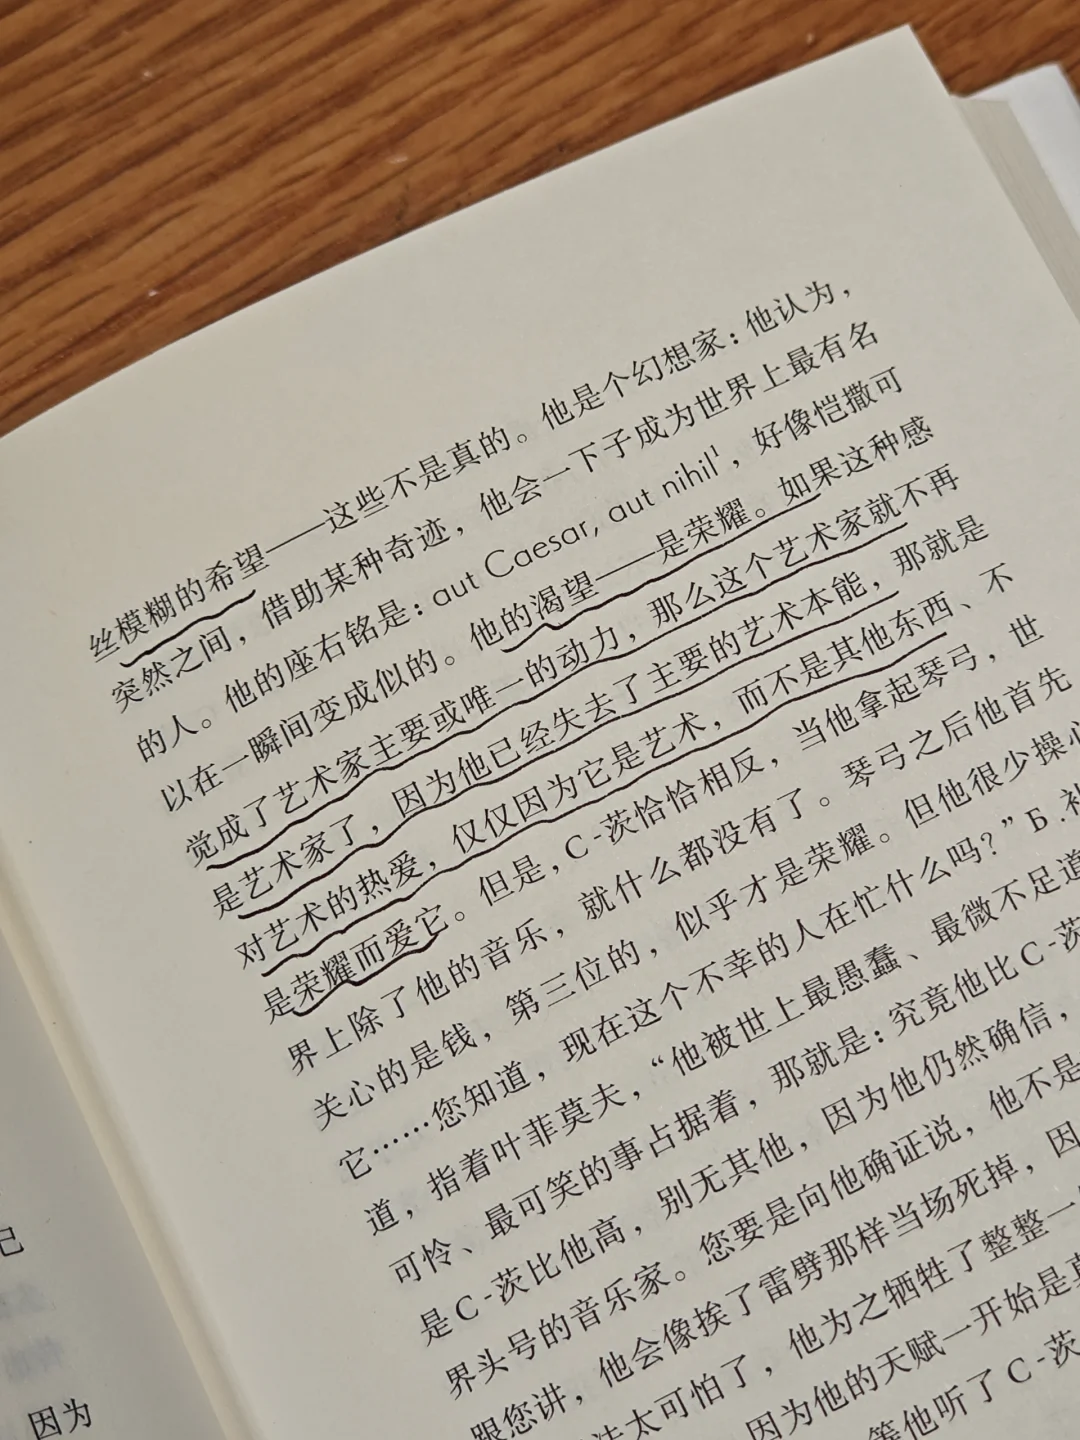 丝模糊的希望——这些不是真的。他是个幻想家：他认为，
突然之间，借助某种奇迹，他会一下子成为世界上最有名
的人。他的座右铭是：aut Caesar, aut nihil¹，好像恺撒可
以在一瞬间变成似的。他的渴望——是荣耀。如果这种感
觉成了艺术家主要或唯一的动力，那么这个艺术家就不再
是艺术家了，因为他已经失去了主要的艺术本能，那就是
对艺术的热爱，仅仅因为它是艺术，而不是其他东西、不
是荣耀而爱它。但是，С-茨恰恰相反，当他拿起琴弓，世
界上除了他的音乐，就什么都没有了。琴弓之后他首先
关心的是钱，第三位的，似乎才是荣耀。但他很少操心
它……您知道，现在这个不幸的人在忙什么吗？”Б.补
道，指着叶菲莫夫，“他被世上最愚蠢、最微不足道
可怜、最可笑的事占据着，那就是：究竟他比С-茨
是С-茨比他高，别无其他，因为他仍然确信，
界头号的音乐家。您要是向他确证说，他不是
跟您讲，他会像挨了雷劈那样当场死掉，因
法太可怕了，他为之牺牲了整整一
因为他的天赋一开始是真
等他听了С-茨
己
因为